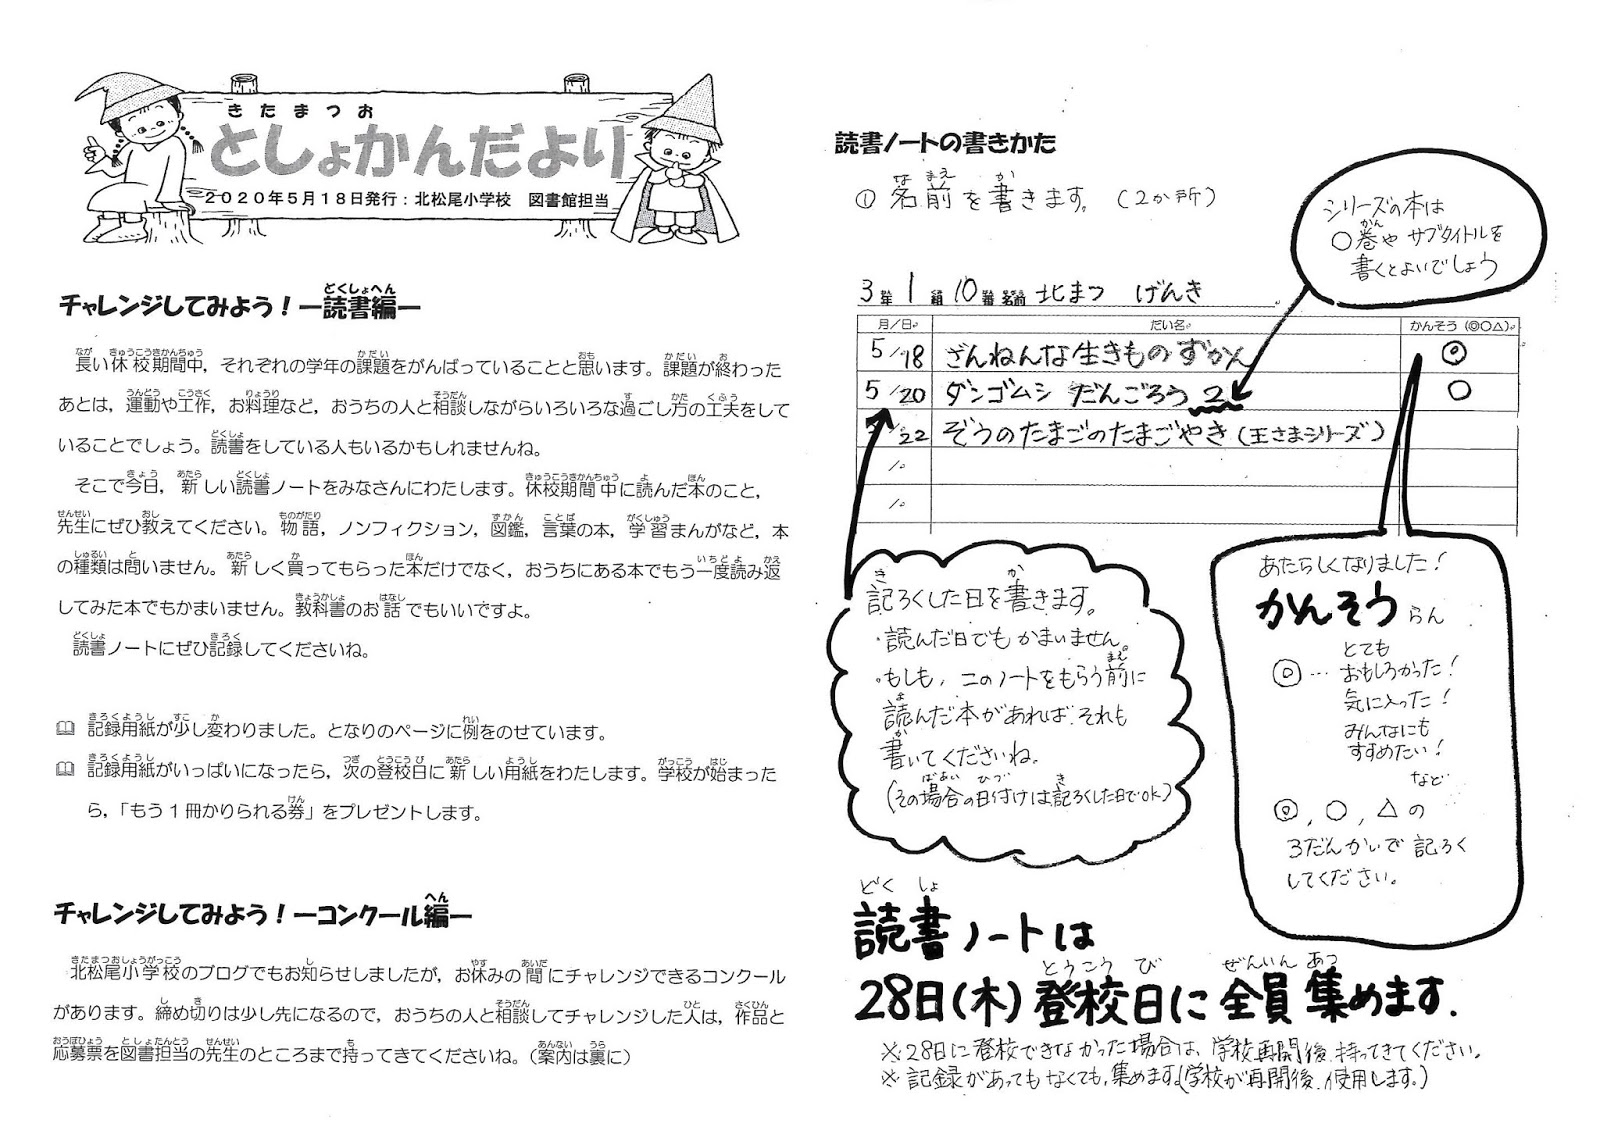 きたまつお
としょかんだより
2020年5月18日発行：北松尾小学校　図書館担当
チャレンジしてみよう！―読書編―
長い休校期間中，それぞれの学年の課題をがんばっていることと思います。課題が終わった
あとは，運動や工作，お料理など，おうちの人と相談しながらいろいろな過ごし方の工夫をして
いることでしょう。読書をしている人もいるかもしれませんね。
そこで今日，新しい読書ノートをみなさんにわたします。休校期間中に読んだ本のこと，
先生にぜひ教えてください。物語，ノンフィクション，図鑑，言葉の本，学習まんがなど，本
の種類は問いません。新しく買ってもらった本だけでなく，おうちにある本でもう一度読み返
してみた本でもかまいません。教科書のお話でもいいですよ。
読書ノートにぜひ記録してくださいね。
記録用紙が少し変わりました。となりのページに例をのせています。
記録用紙がいっぱいになったら，次の登校日に新しい用紙をわたします。学校が始まった
ら，「もう1冊かりられる券」をプレゼントします。
チャレンジしてみよう！―コンクール編―
北松尾小学校のブログでもお知らせしましたが，お休みの間にチャレンジできるコンクール
があります。締め切りは少し先になるので，おうちの人と相談してチャレンジした人は，作品と
応募票を図書担当の先生のところまで持ってきてくださいね。（案内は裏に）
読書ノートの書きかた
① 名前を書きます。（2か所）
シリーズの本は
○巻や サブタイトルを
書くとよいでしょう
3年 1組 10番 名前 北まつ げんき
月／日 だい名 かんそう（◎○△）
5／18 ざんねんな生きものずかん ◎
5／20 ダンゴムシ だんごろう 2 ○
／22 ぞうのたまごのたまごやき（王さまシリーズ）
／
／
記ろくした日を書きます。
・読んだ日でもかまいません。
・もしも，このノートをもらう前に
読んだ本があれば、それも
書いてくださいね。
（その場合の日付けは記ろくした日でOK）
あたらしくなりました！
かんそうらん
◎… とても
おもしろかった！
気に入った！
みんなにも
すすめたい！
など
◎，○，△の
3だんかいで 記ろく
してください。
読書ノートは
28日（木）登校日に全員集めます．
※28日に登校できなかった場合は、学校再開後、持ってきてください。
※記録があってもなくても、集めます（学校が再開後、使用します。）